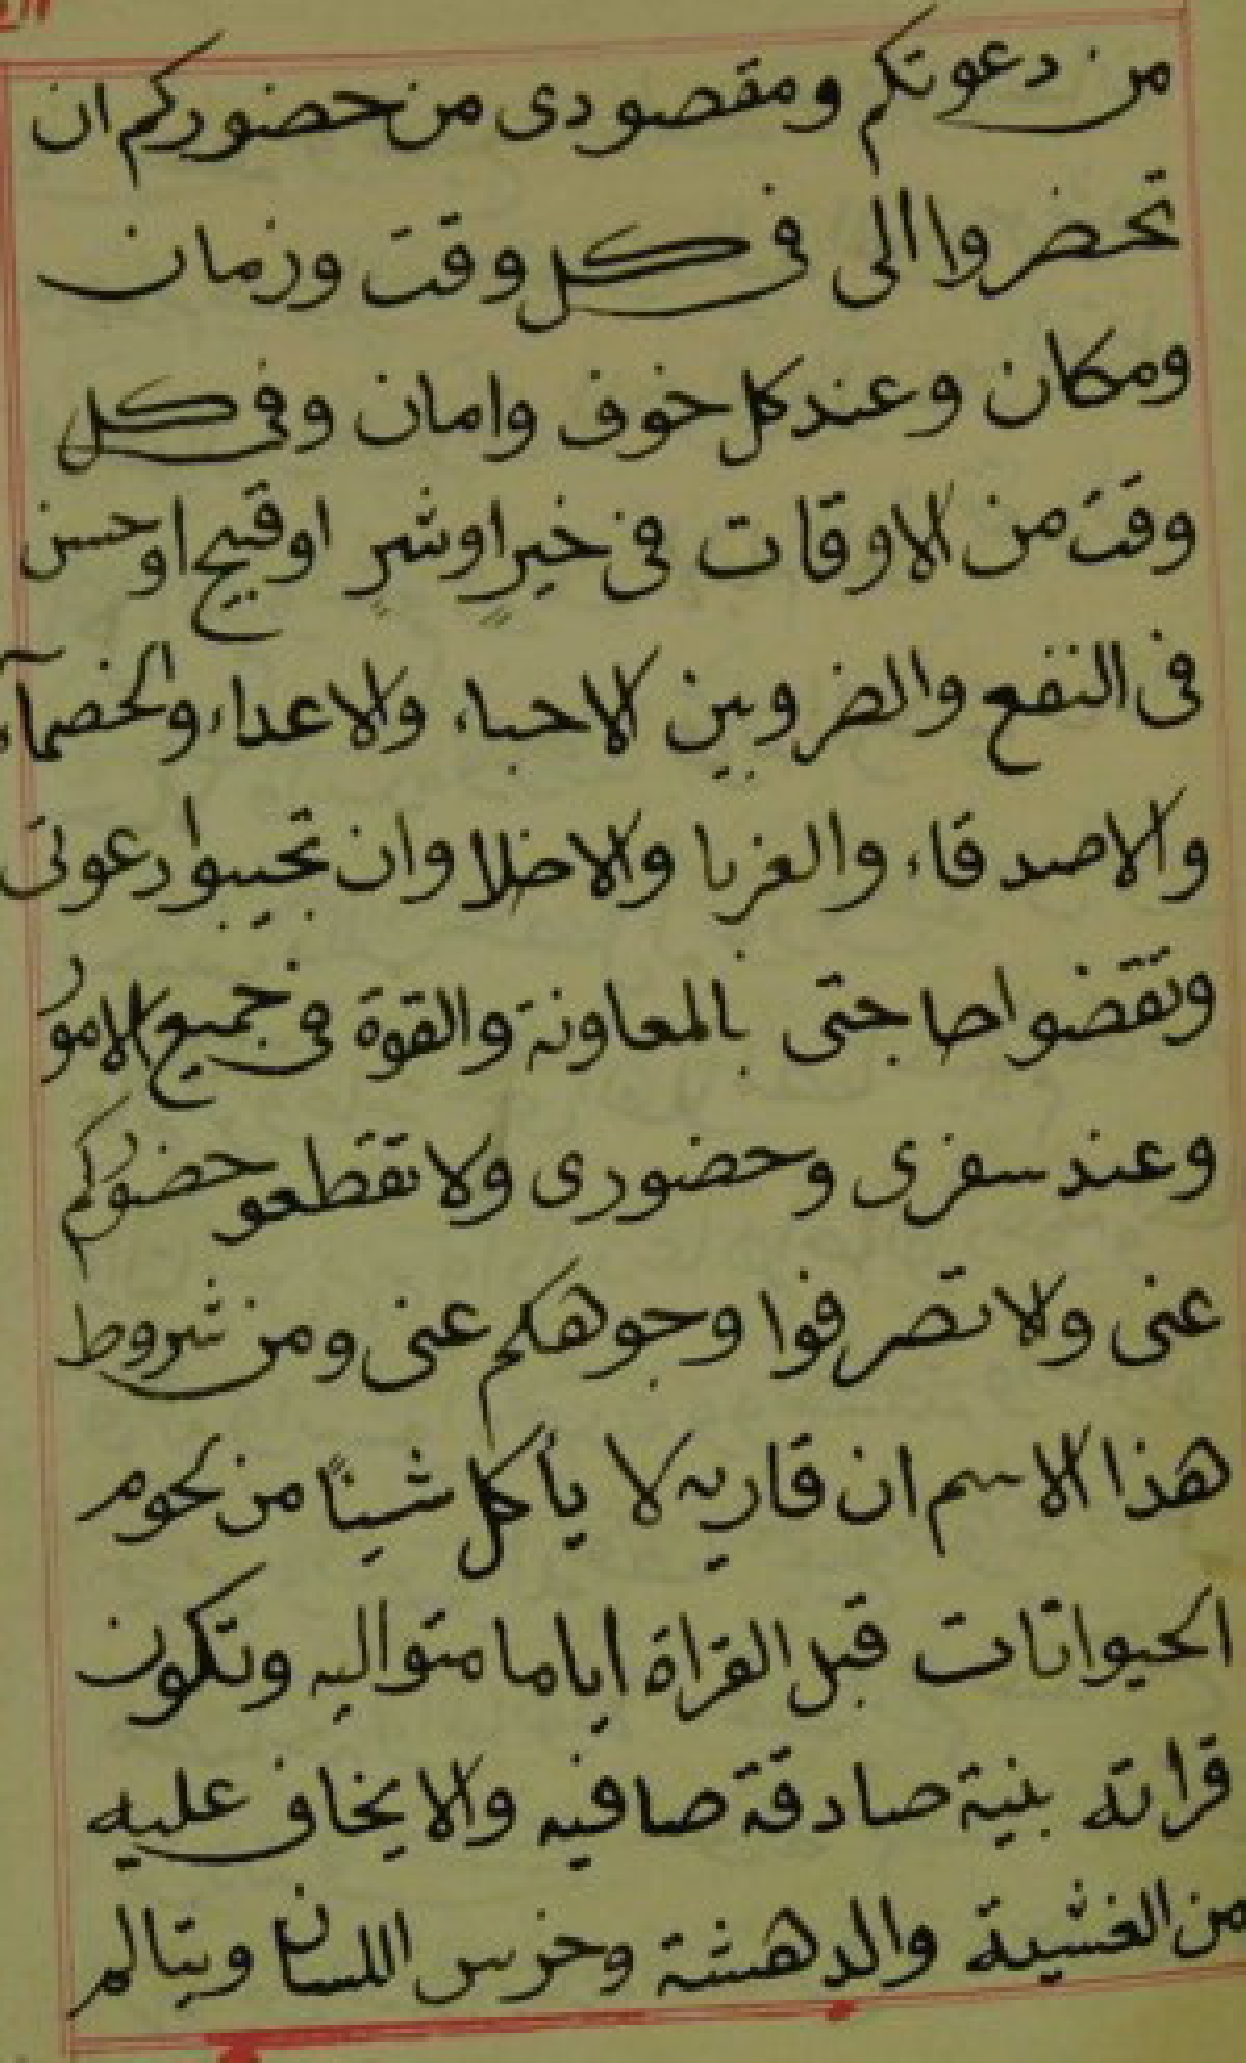 من دعوتكم ومقصودى من حضوركم ان
تحضروا الى فى كل وقت وزمان
ومكان وعند كل خوف وامان وفى كل
وقت من الاوقات فى خيرٍ اوشرٍ اوقبيح اوحسن
فى النفع والضر وبين الاحباء والاعداء والخصمآء
والاصدقاء والغربا والاخلا وان تجيبوا دعوتى
وتقضوا حاجتى بالمعاونة والقوة فى جميع الامور
وعند سفرى وحضورى ولا تقطعو حضوركم
عنى ولا تصرفوا وجوهكم عنى ومن شروط
هذا الاسم ان قاريه لا يأكل شيئاً من لحوم
الحيوانات قبل القراة اياما متواليه وتكون
قراته بنية صادقة صافيه والا يخاف عليه
من الغشية والدهشة وخرس اللسان ويتالم